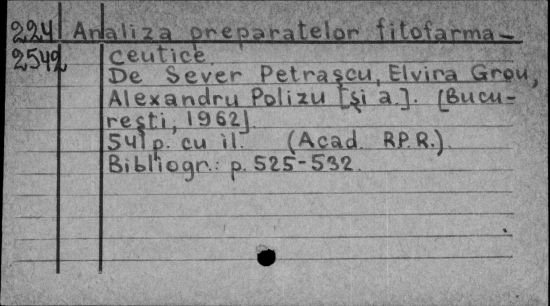 224 Analiza preparatelor fitofarma-
2542 ceutice.
De Sever Petraşcu, Elvira Grou,
Alexandru Polizu [şi a.]. [Bucu-
reşti, 1962].
541 p. cu il. (Acad. R.P.R.).
Bibliogr.: p. 525-532.